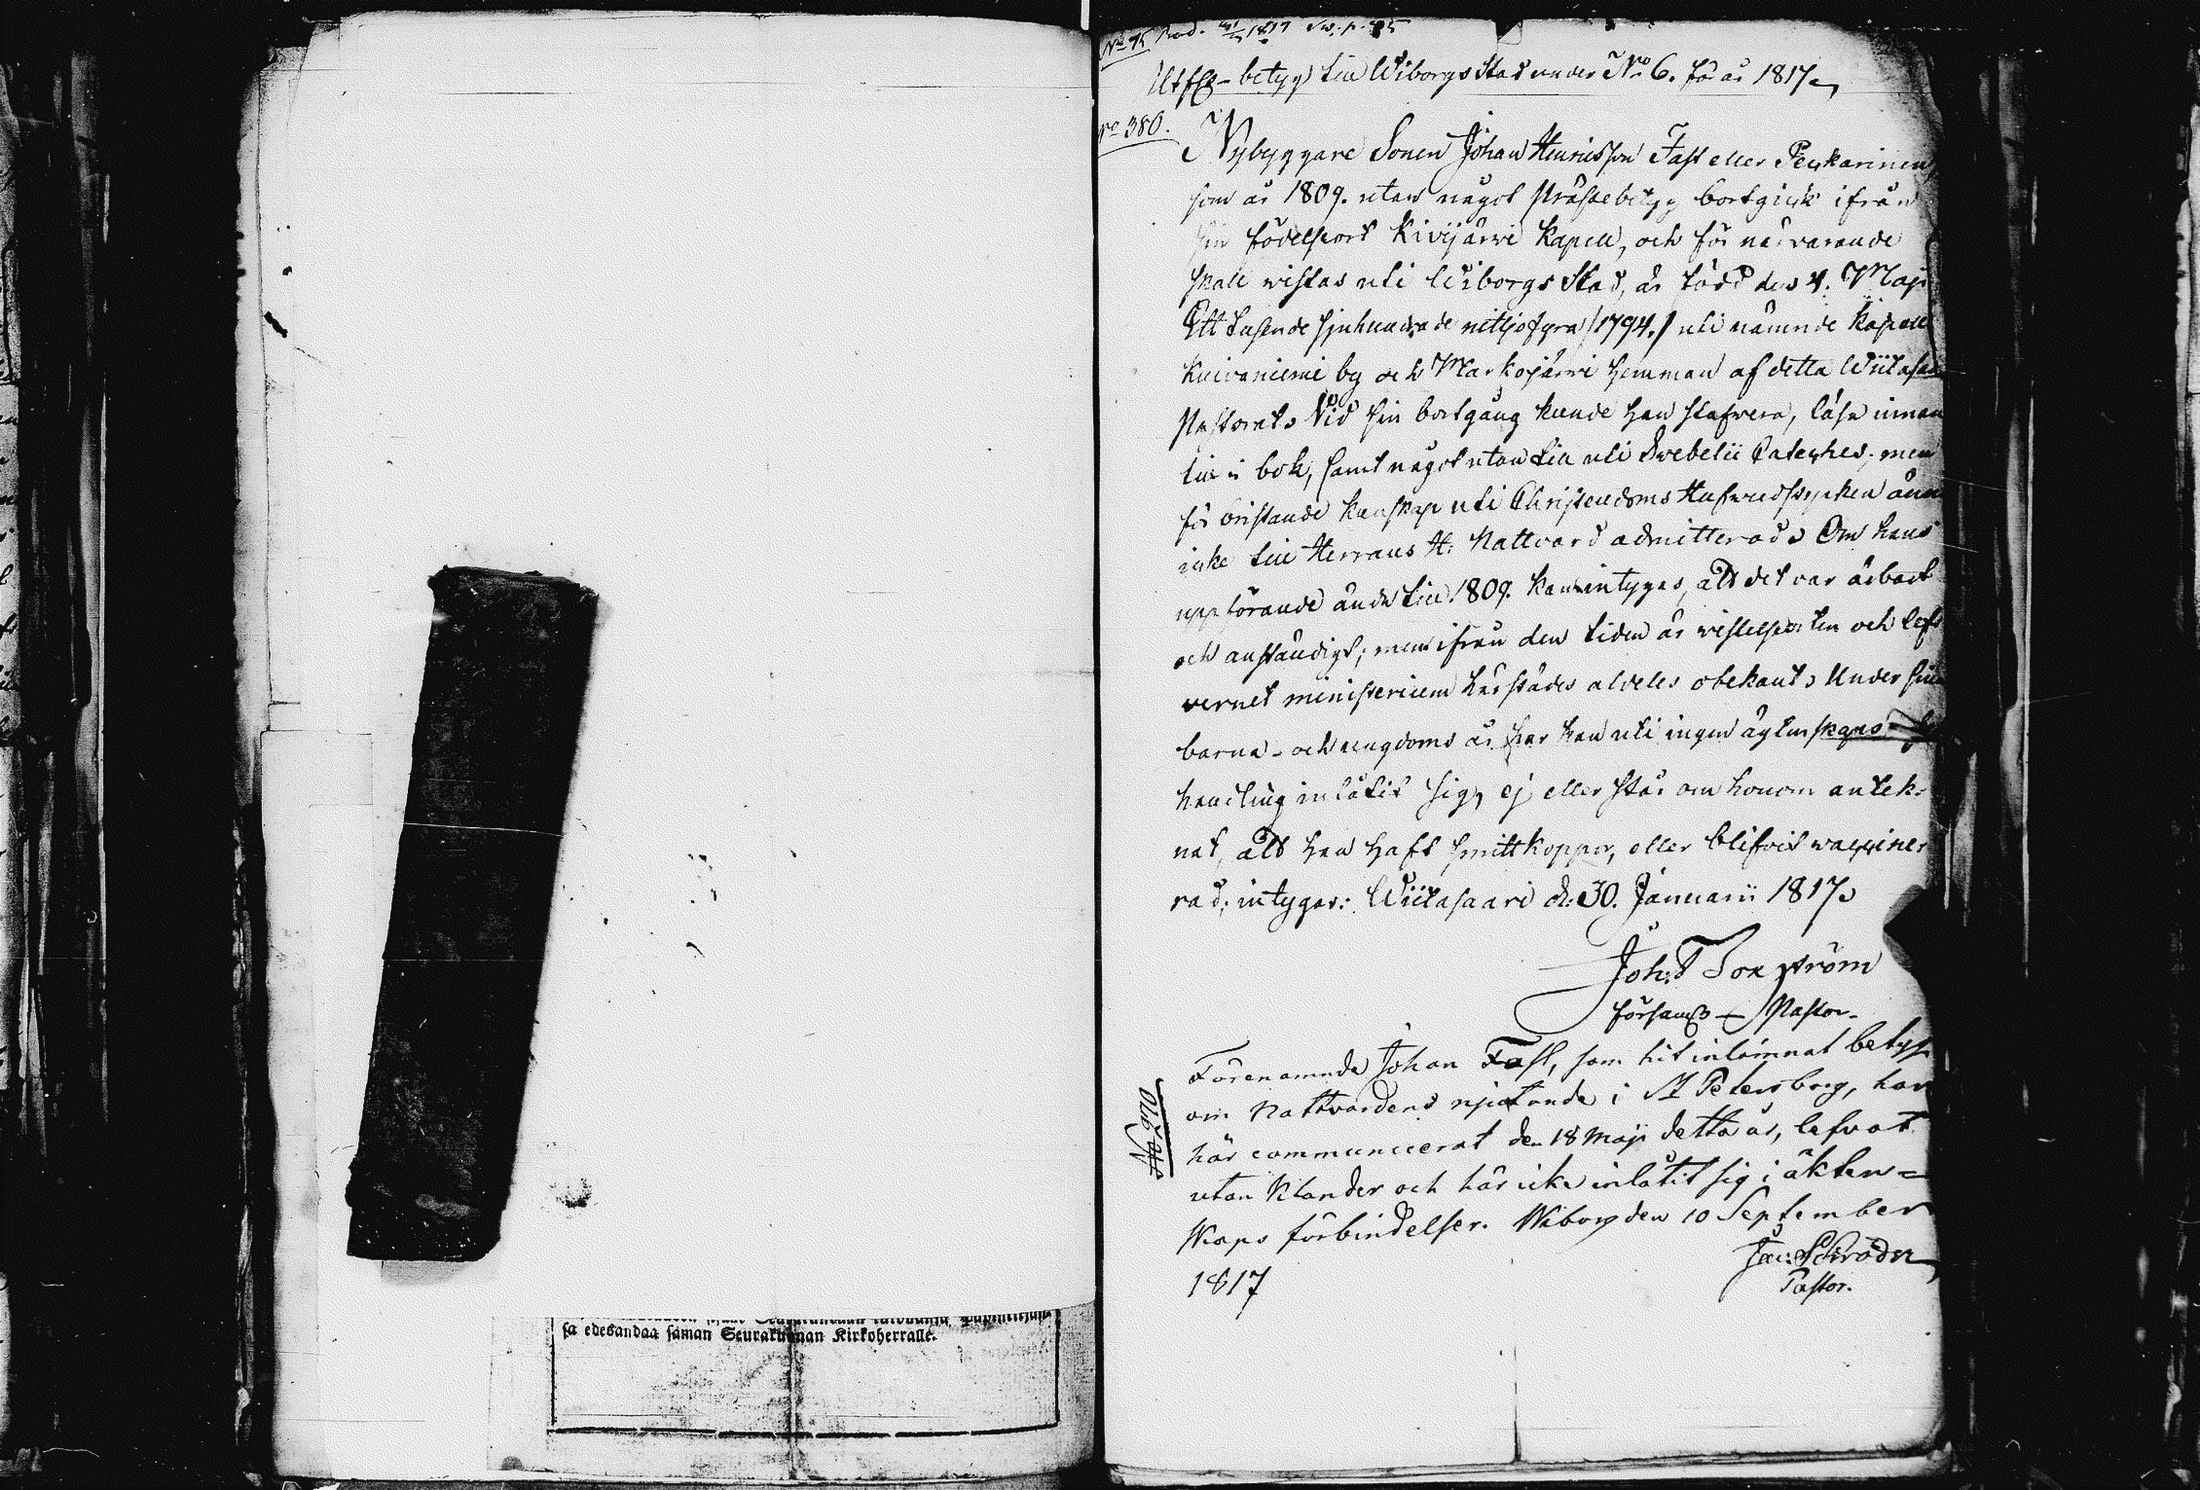 sa edesandaa saman Seurakunnan Kirkoherralle.
No 95 Prod. 1817
betyg till Wiborgs Stad under No 6. för år 1817
No 380.
Nybyggare Sonen Johan Henricsson Fast eller Pekkarinen,
som år 1809. utan något Prästebetyg bortgick ifrån
sin födelseort Kivijärvi Kapell, och för närvarande
skall wistas uti Wiborgs Stad, är född den 4. Maji
Ett tusende sjuhundrade nittjofyra /1794./ uti nämnde Kapell
Kuivaniemi by och Markojärvi hemman af detta Wiitasaari
Pastorat. Vid sin bortgång kunde han stafwera, läsa innan
till i bok, samt något utan till uti Svebelii Cateches; men
för bristande kunskap uti Christendoms Hufwudstycken ännu
icke till Herrans H: Nattvard admitterad. Om hans
upp förande ända till 1809. kan intygas, att det var ärbart
och anständigt; men ifrån den tiden är vistelseorten och lef-
vernet ministerium härstädes aldeles obekant. Under sina
barna- och ungdoms år har han uti ingen ägtenskaps-
handling inlåtit sig, ej eller står om honom antek-
nat, att han haft smittkoppor, eller blifvit waccine-
rad; intygar: Wiitasaari d. 30. Januarii 1817.
Joh: Toxström
församl Pastor.
No 260
Förenämnde Johan Fast, som hit inlämnat betyg
om Nattvardens njutande i St Petersborg, har
här communicerat den 18 Maji detta år, lefvat
utan klander och här icke inlåtit sig i äkten=
skaps förbindelser. Wiborg den 10 September
1817
Jac: Schröder
Pastor.